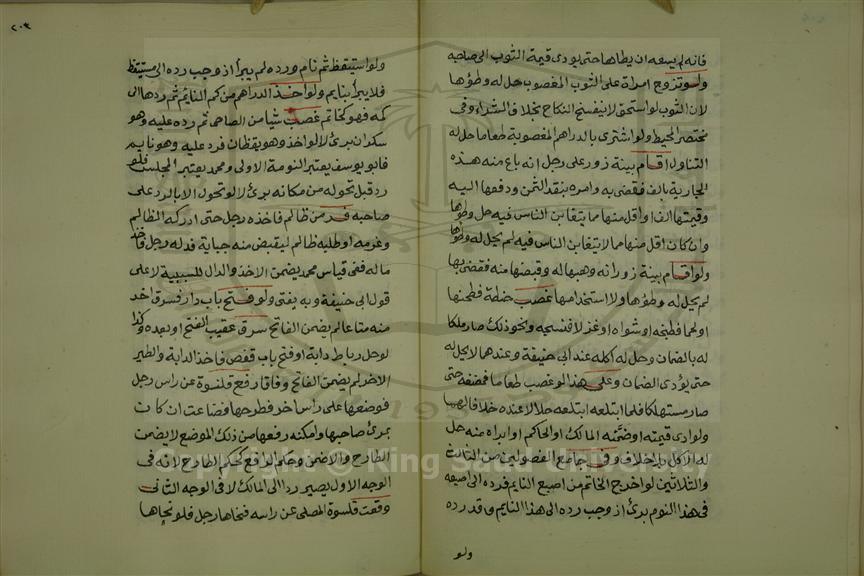 فانه لم يسعه ان يطاها حتى يودى قيمة الثوب الى صاحبه
ولو تزوج امراة على الثوب المغصوب حل له وطؤها
لان الثوب لو استحق لا ينفسخ النكاح بخلاف الشراء وفى
مختصر المحيط ولو اشترى بالدراهم المغصوبة طعاما حل له
التناول اقام بينة زور على رجل انه باع منه هذه
الجارية بالف فقضى به وامره بنقد الثمن ودفعها اليه
وقيمتها الف او اقل منها مما يتغابن الناس فيه حل وطؤها
وان كان اقل منها مما لا يتغابن الناس فيه لم يحل له وطؤها
ولو اقام بينة زور انه وهبها له وقبضها منه فقضى بها
لم يحل له وطؤها ولا استخدامها غصب حنطة فطحنها
او لحما فطبخه او شواه او غزلا فنسجه ونحو ذلك صار ملكا
له بالضمان وحل له اكله عند ابى حنيفة وعندهما لا يحل له
حتى يودى الضمان وعلى هذا لو غصب طعاما فمضغه حتى
صار مستهلكا فلما ابتلعه ابتلعه حلالا عنده خلافا لهما
ولو ادى قيمته او ضمنه المالك او الحاكم او ابراه منه حل
له الاكل بلا خلاف وفى جامع الفصولين من الثالث
والثلاثين لو اخرج الخاتم من اصبع النايم فرده الى اصبعه
فى هذا النوم برئ اذ وجب رده الى هذا النايم وقد رده
ولو
٢٠٣
ولو استيقظ ثم نام ورده لم يبرأ اذ وجب رده الى مستيقظ
فلا يبرأ بنايم ولو اخذ الدراهم من كم النايم ثم ردها الى
كمه فهو كخاتم غصب شيا من الصاحى ثم رده عليه وهو
سكران برئ لا لو اخذ وهو يقظان فرد عليه وهو نايم
فابو يوسف يعتبر النومة الاولى ومحمد يعتبر المجلس فلو
رد قبل تحوله من مكانه برئ لا لو تحول الا بالرد على
صاحبه فر من ظالم فاخذه رجل حتى ادركه الظالم
وغرمه او طلبه ظالم ليقبض منه جباية فدله رجل فاخذ
ماله ففى قياس محمد يضمن الاخذ والدال للسببية لا على
قول ابى حنيفة وبه يفتى ولو فتح باب دار فسرق اخر
منه متاعا لم يضمن الفاتح سرق عقيب الفتح او بعده وكذا
لو حل رباط دابة او فتح باب قفص فاخذ الدابة والطير
الاخر لم يضمن الفاتح وفاقا رفع قلنسوة عن راس رجل
فوضعها على راس اخر فطرحها فضاعت ان كانت
بمرئ صاحبها وامكنه رفعها من ذلك الموضع لا يضمن
الطارح والا ضمن وحكم الرافع كحكم الطارح لانه فى
الوجه الاول يصير ردا الى المالك لا فى الوجه الثانى
وقعت قلنسوة المصلى عن راسه فنحاها رجل فلو نحاها